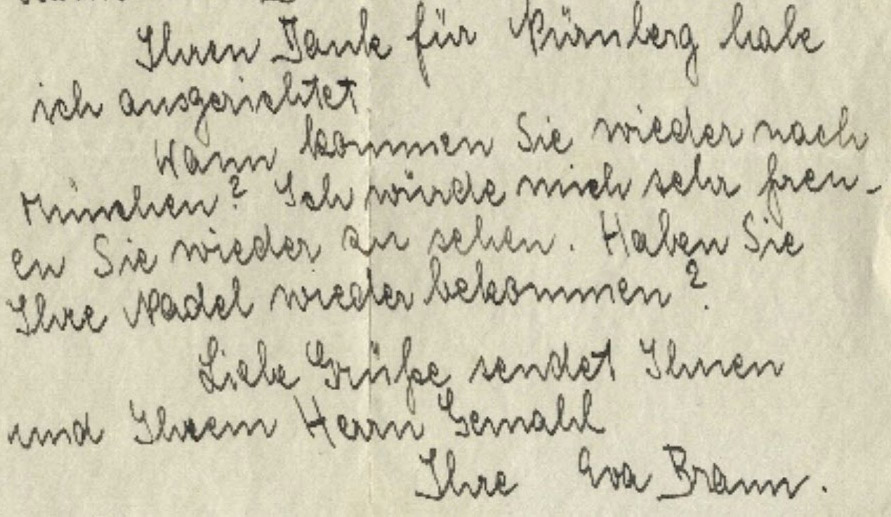 Ihren Dank für Nürnberg habe
ich ausgerichtet.
Wann kommen Sie wieder nach
München? Ich würde mich sehr freu-
en Sie wieder zu sehen. Haben Sie
Ihre Nadel wieder bekommen?
Liebe Grüße sendet Ihnen
und Ihrem Herrn Gemahl
Ihre Eva Braun.